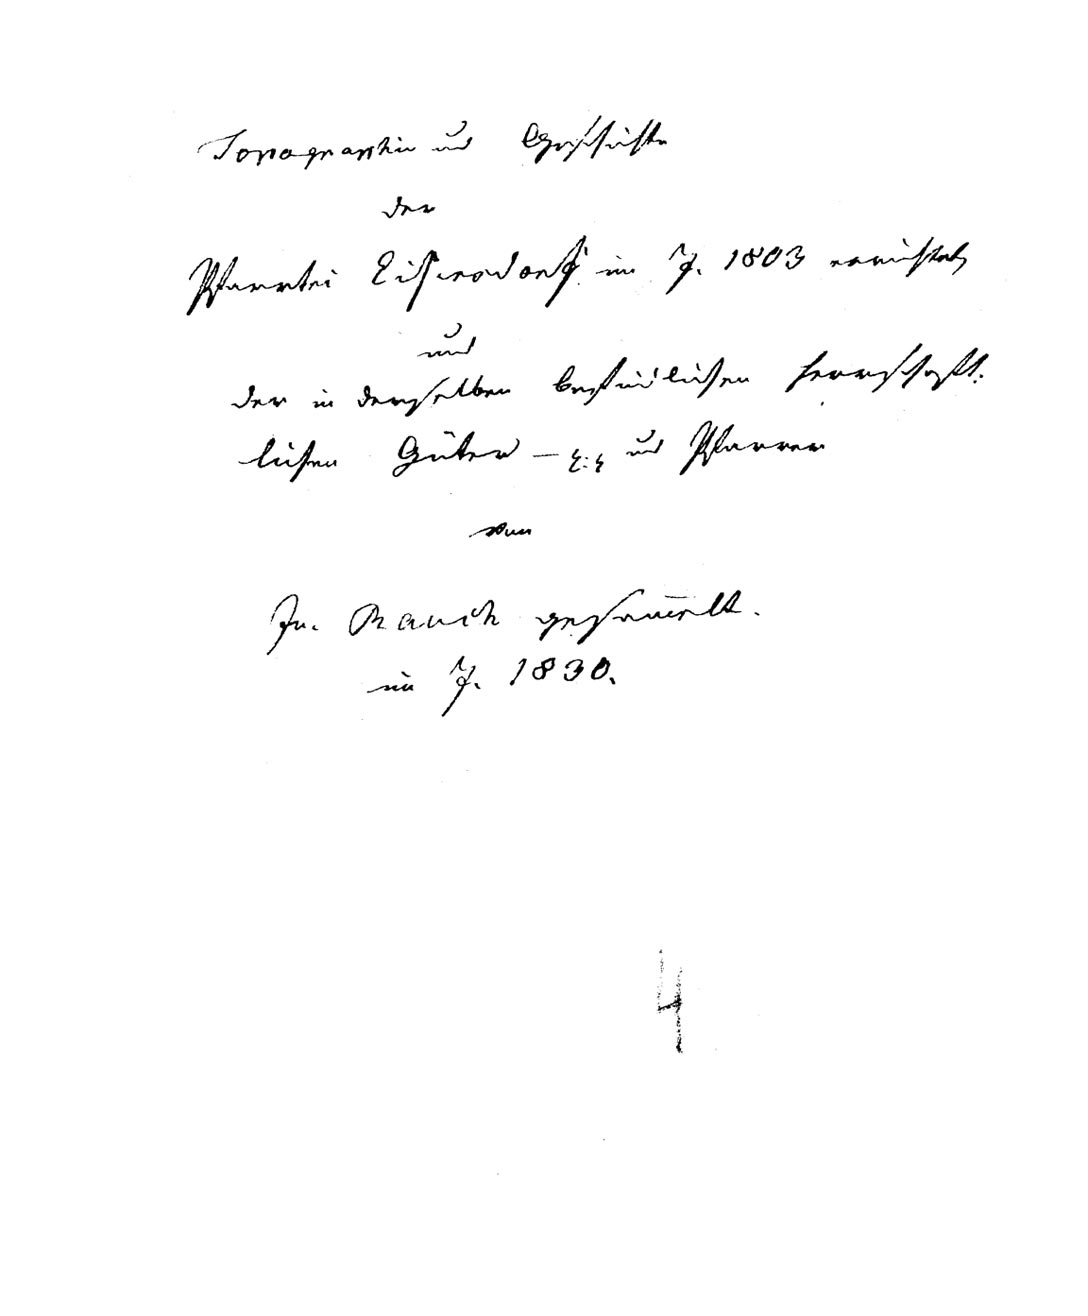 Topographie und Geschichte
der
Pfarrei im J. 1803 errichtet,
und
der in derselben befindlichen herrschaft-
lichen Güter – und Pfarrer
von
Rauch gesam̅elt.
im J. 1830.
4